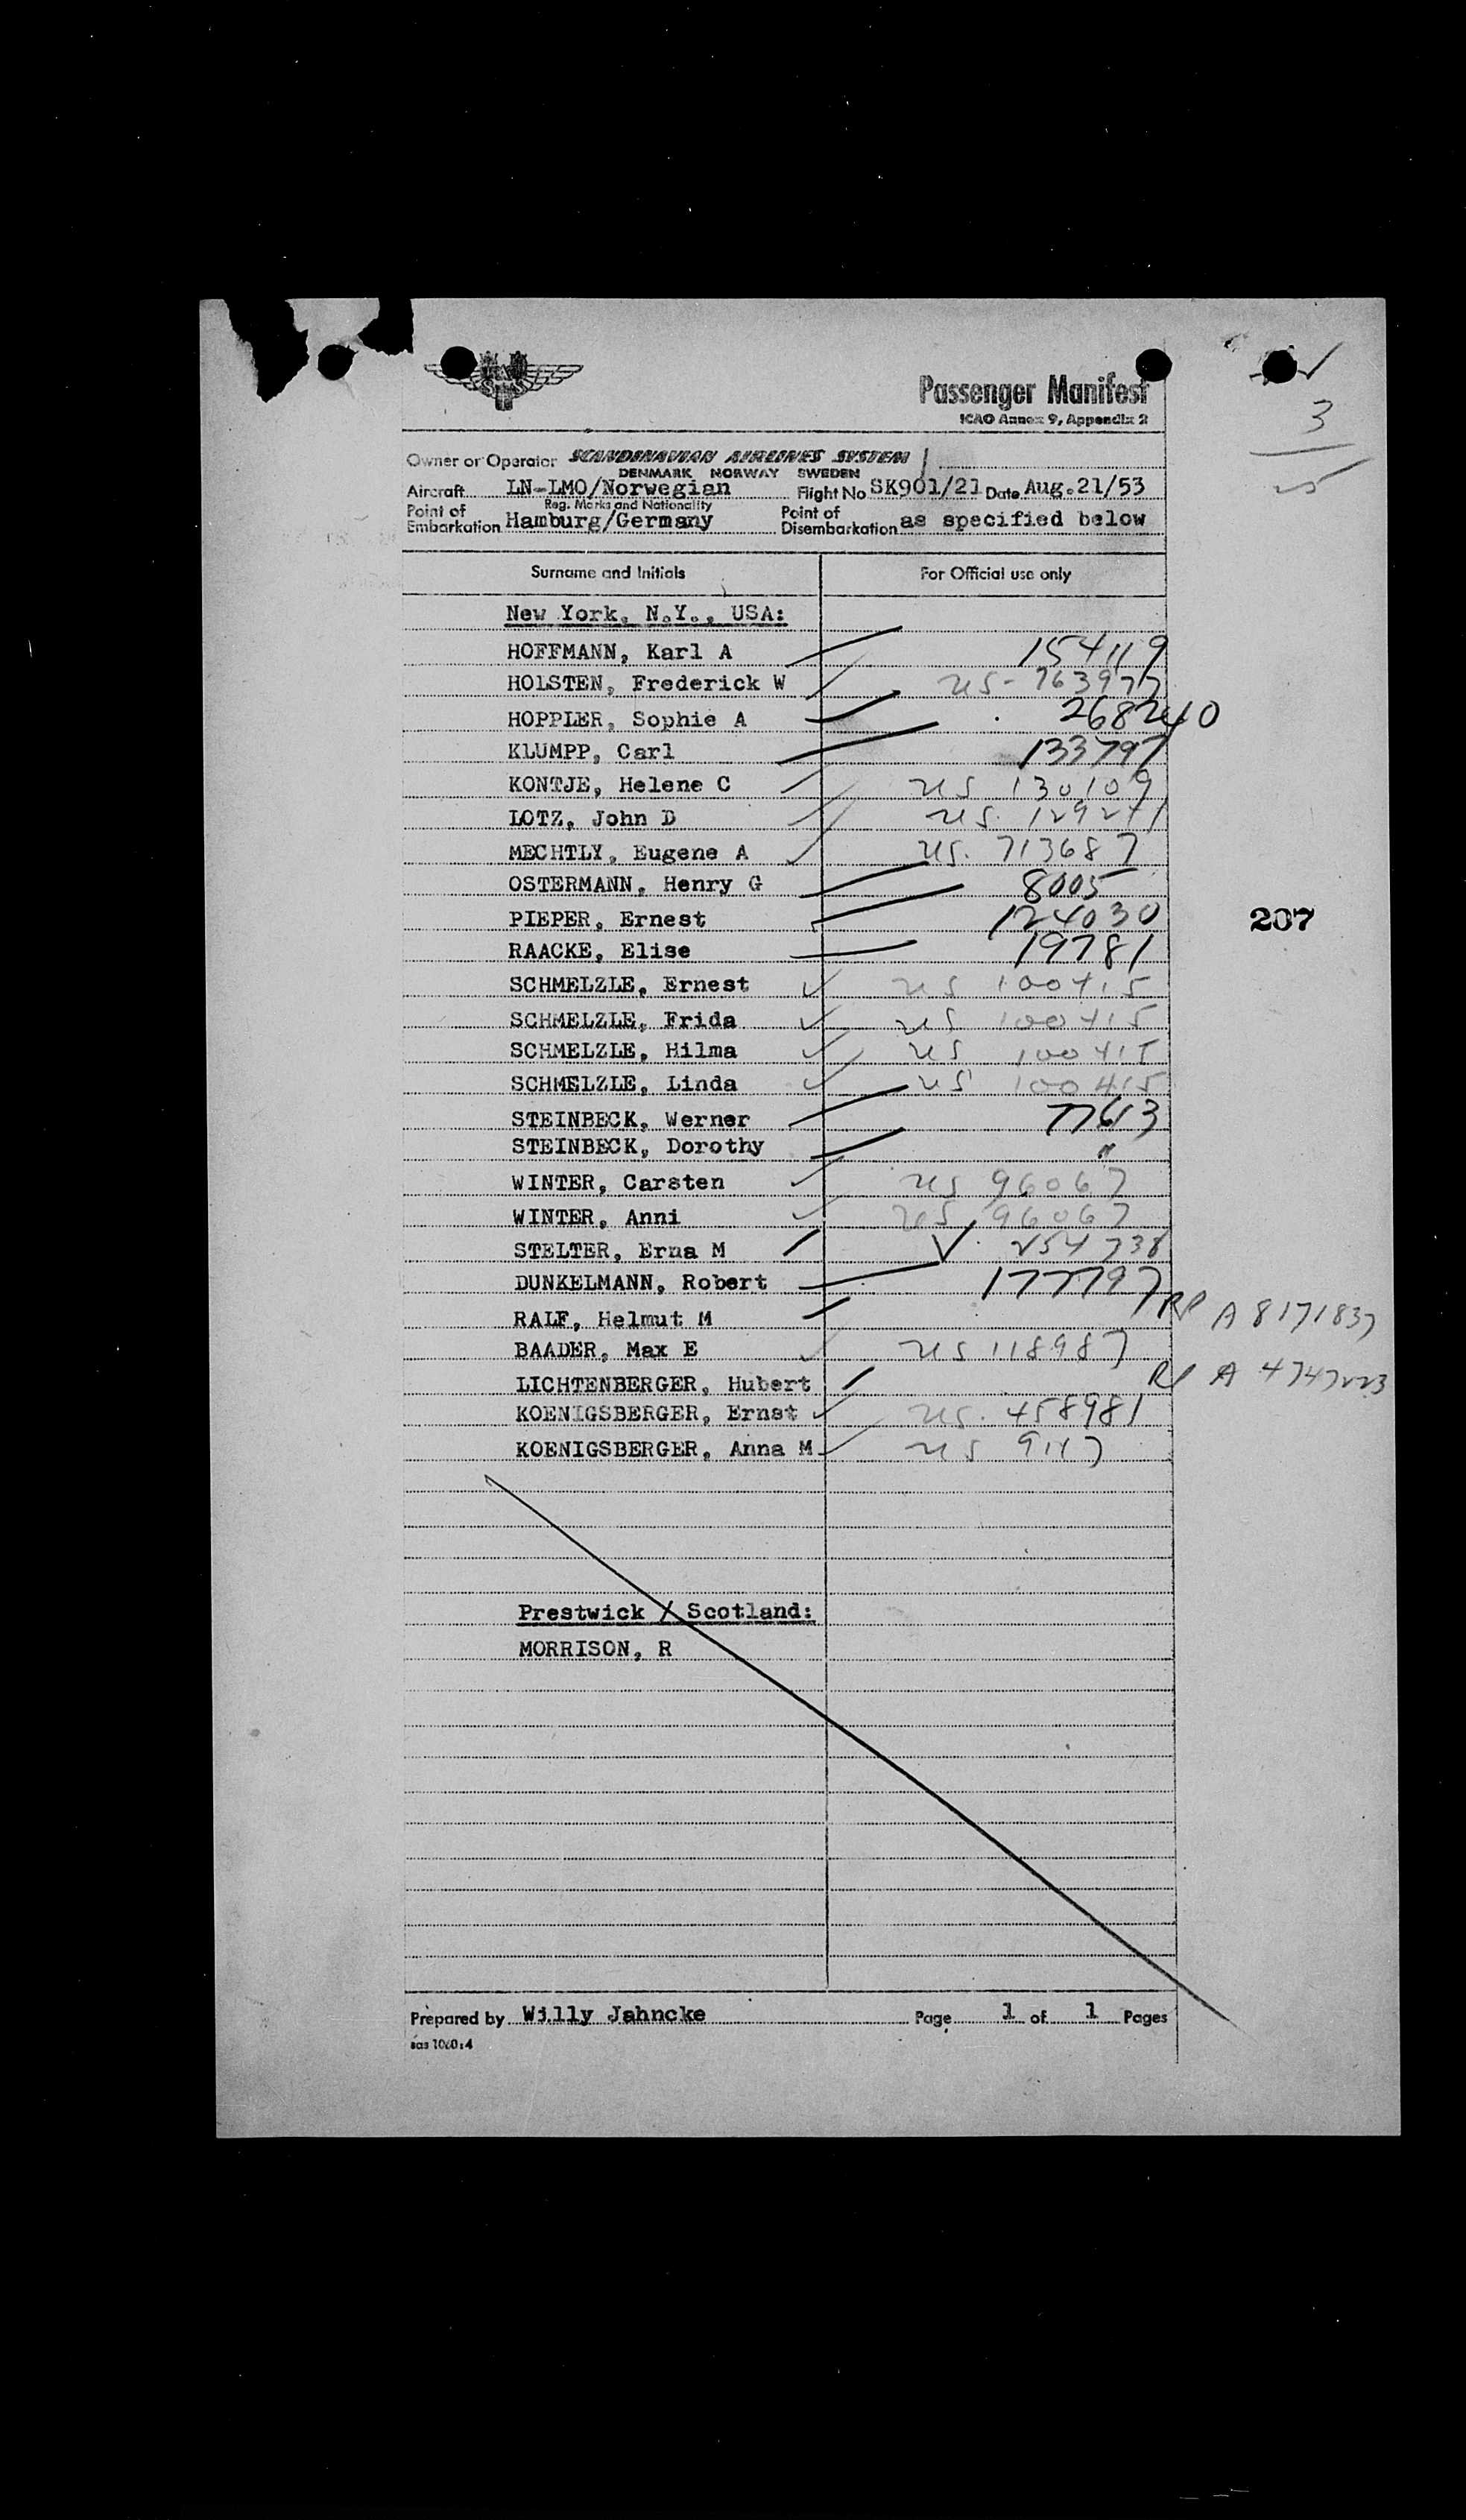 Passenger Manifest
ICAO Annex 9, Appendix 2
3
Owner or Operator SCANDINAVIAN AIRLINES SYSTEM
DENMARK NORWAY SWEDEN
Aircraft LN-LMO/Norwegian Flight No SK901/21 Date Aug.21/53
Reg. Marks and Nationality
Point of Embarkation Hamburg/Germany Point of Disembarkation as specified below
Surname and Initials For Official use only
New York, N.Y., USA:
HOFFMANN, Karl A 154119
HOLSTEN, Frederick W US-763977
HOPPLER, Sophie A 268240
KLUMPP, Carl 133797
KONTJE, Helene C US 130109
LOTZ, John D US. 129271
MECHTLY, Eugene A US. 713687
OSTERMANN, Henry G 8005
PIEPER, Ernest 124030
207
RAACKE, Elise 19781
SCHMELZLE, Ernest US 100415
SCHMELZLE, Frida US 100415
SCHMELZLE, Hilma US 100415
SCHMELZLE, Linda US 100415
STEINBECK, Werner 77613
STEINBECK, Dorothy "
WINTER, Carsten US 96067
WINTER, Anni US 96067
STELTER, Erna M 254738
DUNKELMANN, Robert 177797
RALF, Helmut M RP A 8171837
BAADER, Max E US 118987
LICHTENBERGER, Hubert RP A 4747223
KOENIGSBERGER, Ernst US. 458981
KOENIGSBERGER, Anna M US 9147
Prestwick / Scotland:
MORRISON, R
Prepared by Willy Jahncke Page 1 of 1 Pages
sas 1060:4